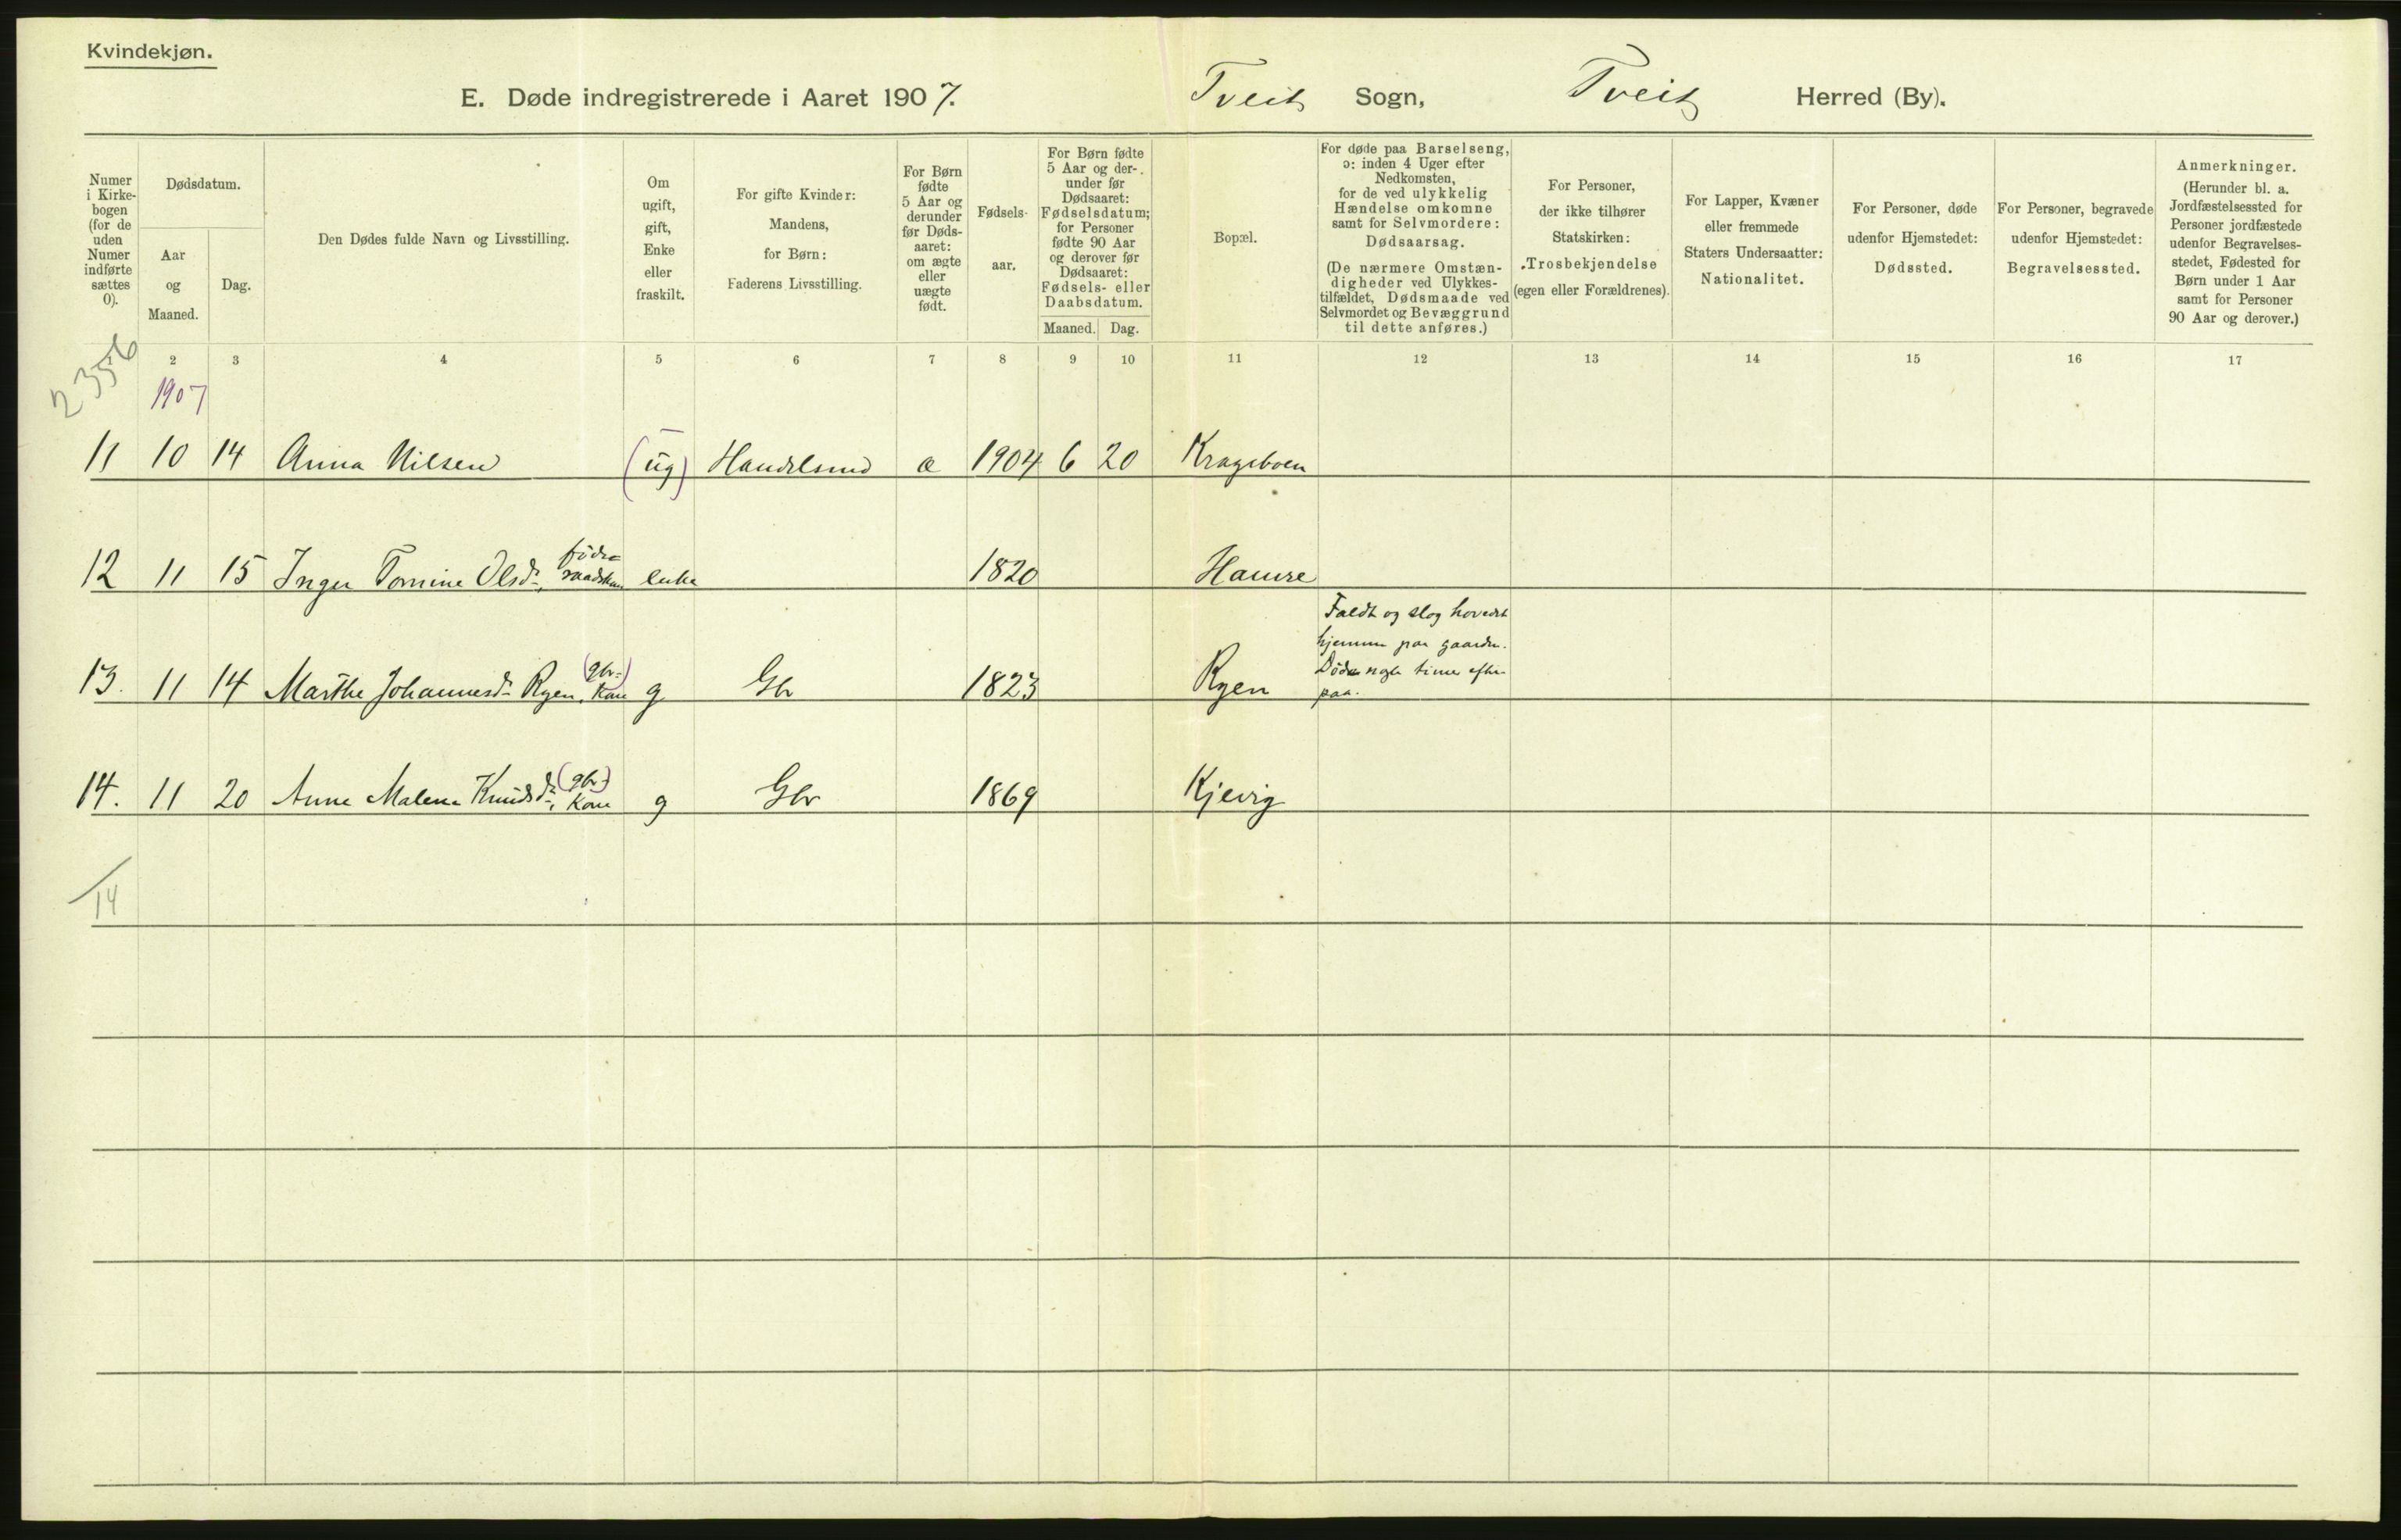 Kvindekjøn.
E. Døde indregistrerede i Aaret 1907. Tveit Sogn, Tveit Herred (By).
Numer i Kirkebogen (for de uden Numer indførte sættes 0).
Dødsdatum.
Aar og Maaned.
Dag.
Den Dødes fulde Navn og Livsstilling.
Om ugift, gift, Enke eller fraskilt.
For gifte Kvinder: Mandens, for Børn: Faderens Livsstilling.
For Børn fødte 5 Aar og derunder før Døds-aaret: om ægte eller uægte født.
Fødsels-aar.
For Børn fødte 5 Aar og der-under før Dødsaaret: Fødselsdatum; for Personer fødte 90 Aar og derover før Dødsaaret: Fødsels- eller Daabsdatum.
Maaned. Dag.
Bopæl.
For døde paa Barselseng, ɔ: inden 4 Uger efter Nedkomsten, for de ved ulykkelig Hændelse omkomne samt for Selvmordere: Dødsaarsag. (De nærmere Omstæn-digheder ved Ulykkes-tilfældet, Dødsmaade ved Selvmordet og Bevæggrund til dette anføres.)
For Personer, der ikke tilhører Statskirken: Trosbekjendelse (egen eller Forældrenes).
For Lapper, Kvæner eller fremmede Staters Undersaatter: Nationalitet.
For Personer, døde udenfor Hjemstedet: Dødssted.
For Personer, begravede udenfor Hjemstedet: Begravelsessted.
Anmerkninger. (Herunder bl. a. Jordfæstelsessted for Personer jordfæstede udenfor Begravelses-stedet, Fødested for Børn under 1 Aar samt for Personer 90 Aar og derover.)
2356
2 3 4 5 6 7 8 9 10 11 12 13 14 15 16 17
1907
11 10 14 Anna Nilsen (ug) Handelsmd æ 1904 6 20 Krageboen
12 11 15 Inger Tomine Olsd., føderaadskone enke 1820 Hamre
13. 11 14 Marthe Johannesd. Ryen, (gbr.) Kone g Gbr 1823 Ryen Faldt og slog hovedet
hjemme paa gaarden.
Døde nogle timer efter
paa.
14. 11 20 Anne Malene Knudsd., (gbr.) Kone g Gbr 1869 Kjevig
14